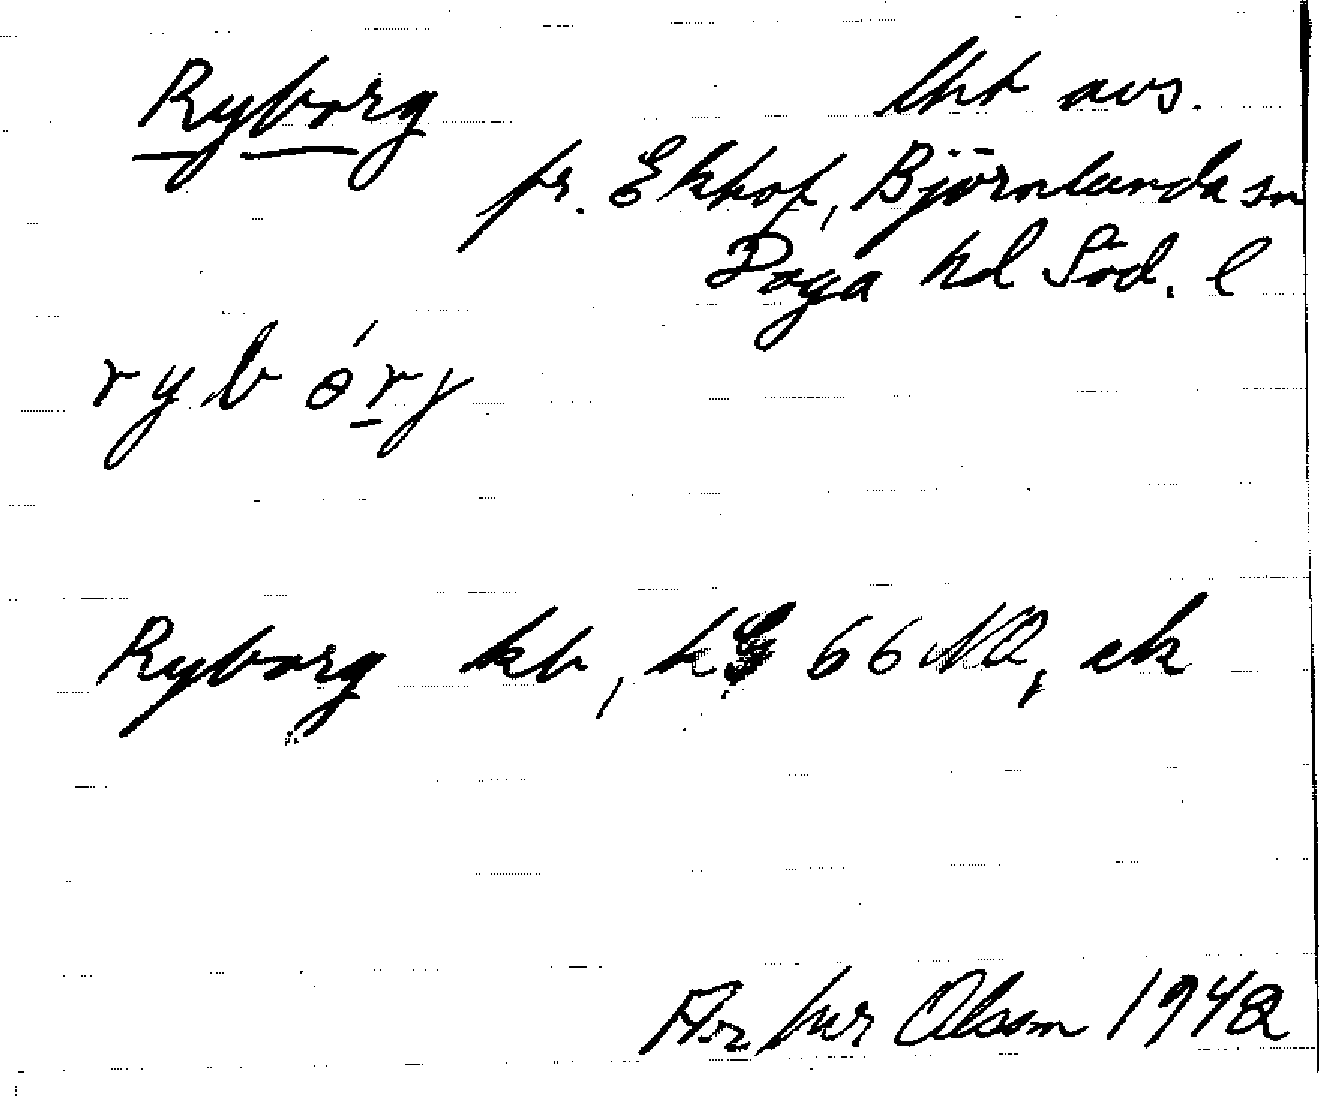 Ryborg lht avs.
fr. Ekhof, Björnlunda sn
Daga hd Söd. l
rybórj
Ryborg kb, 66 NO, ek
Arthur Olsson 1942